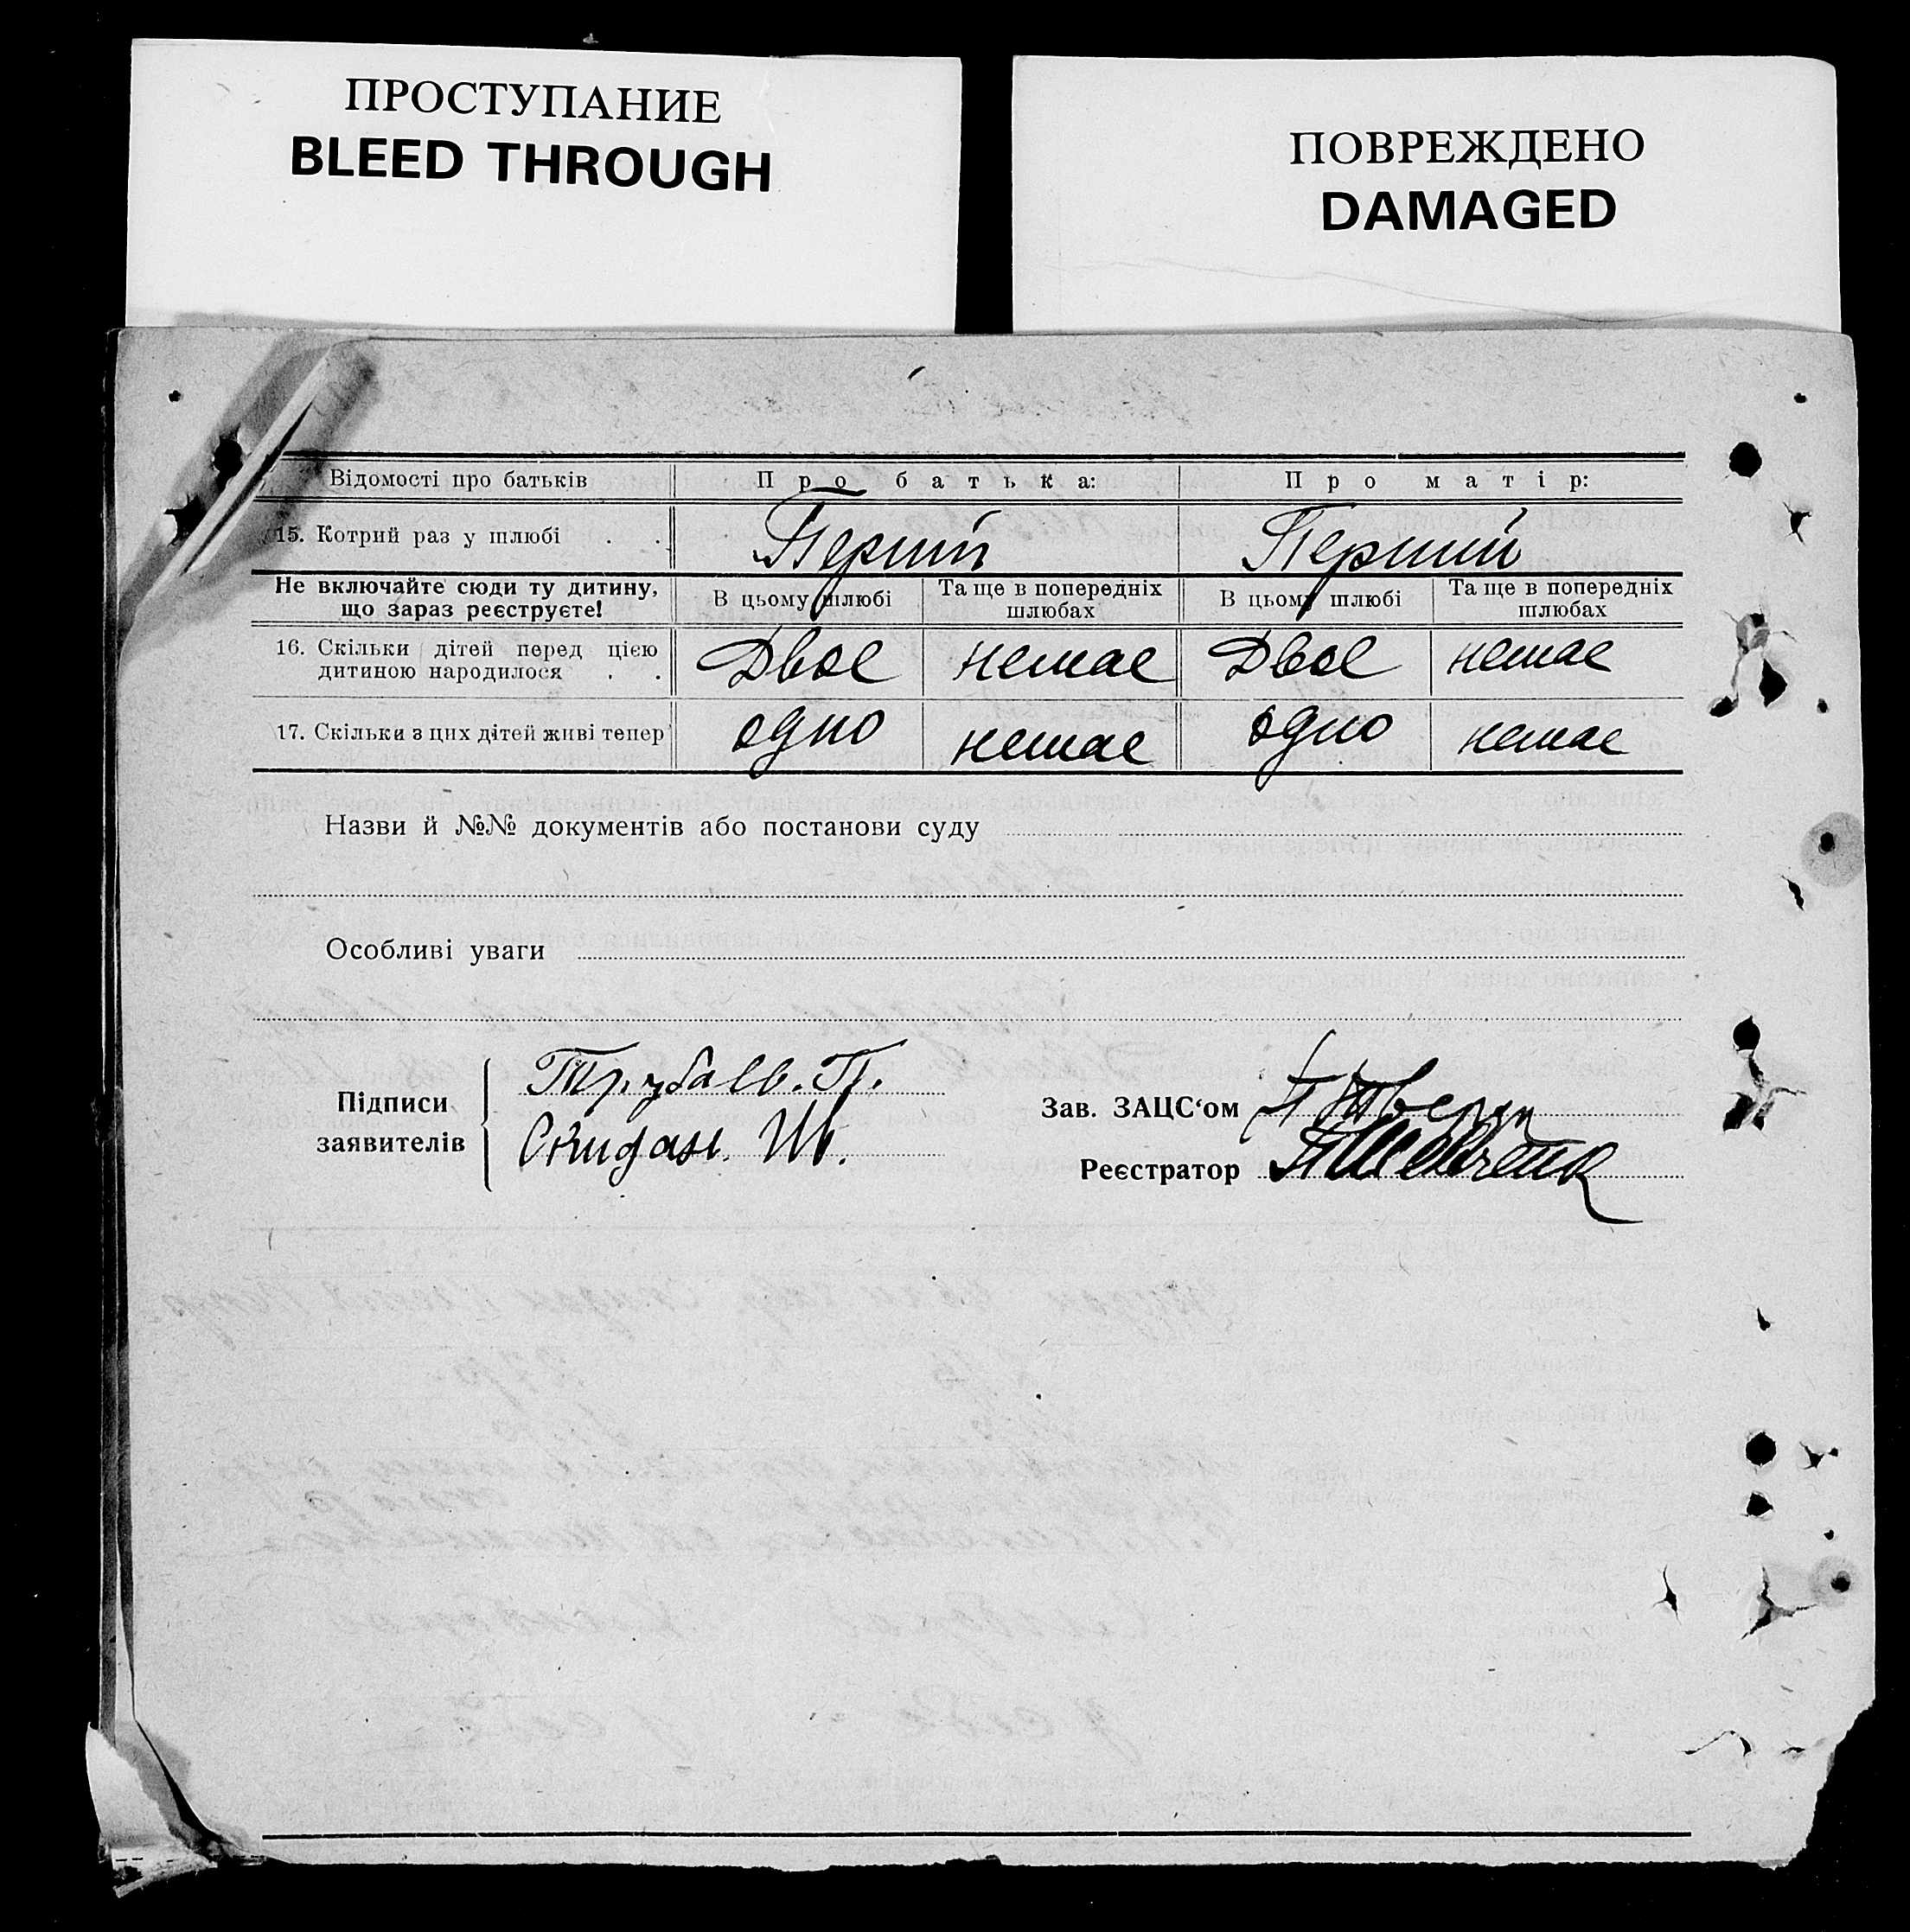 ПРОСТУПАНИЕ
BLEED THROUGH
ПОВРЕЖДЕНО
DAMAGED
Відомості про батьків
Про батька:
Про матір:
15. Котрий раз у шлюбі . .
Перший
Перший
Не включайте сюди ту дитину, що зараз реєструєте!
В цьому шлюбі
Та ще в попередніх шлюбах
В цьому шлюбі
Та ще в попередніх шлюбах
16. Скільки дітей перед цією дитиною народилося . .
Двоє
немає
Двоє
немає
17. Скільки з цих дітей живі тепер
одно
немає
одно
немає
Назви й №№ документів або постанови суду
Особливі уваги
Підписи заявителів
Скидан. Ш.
Зав. ЗАЦС‘ом
Реєстратор